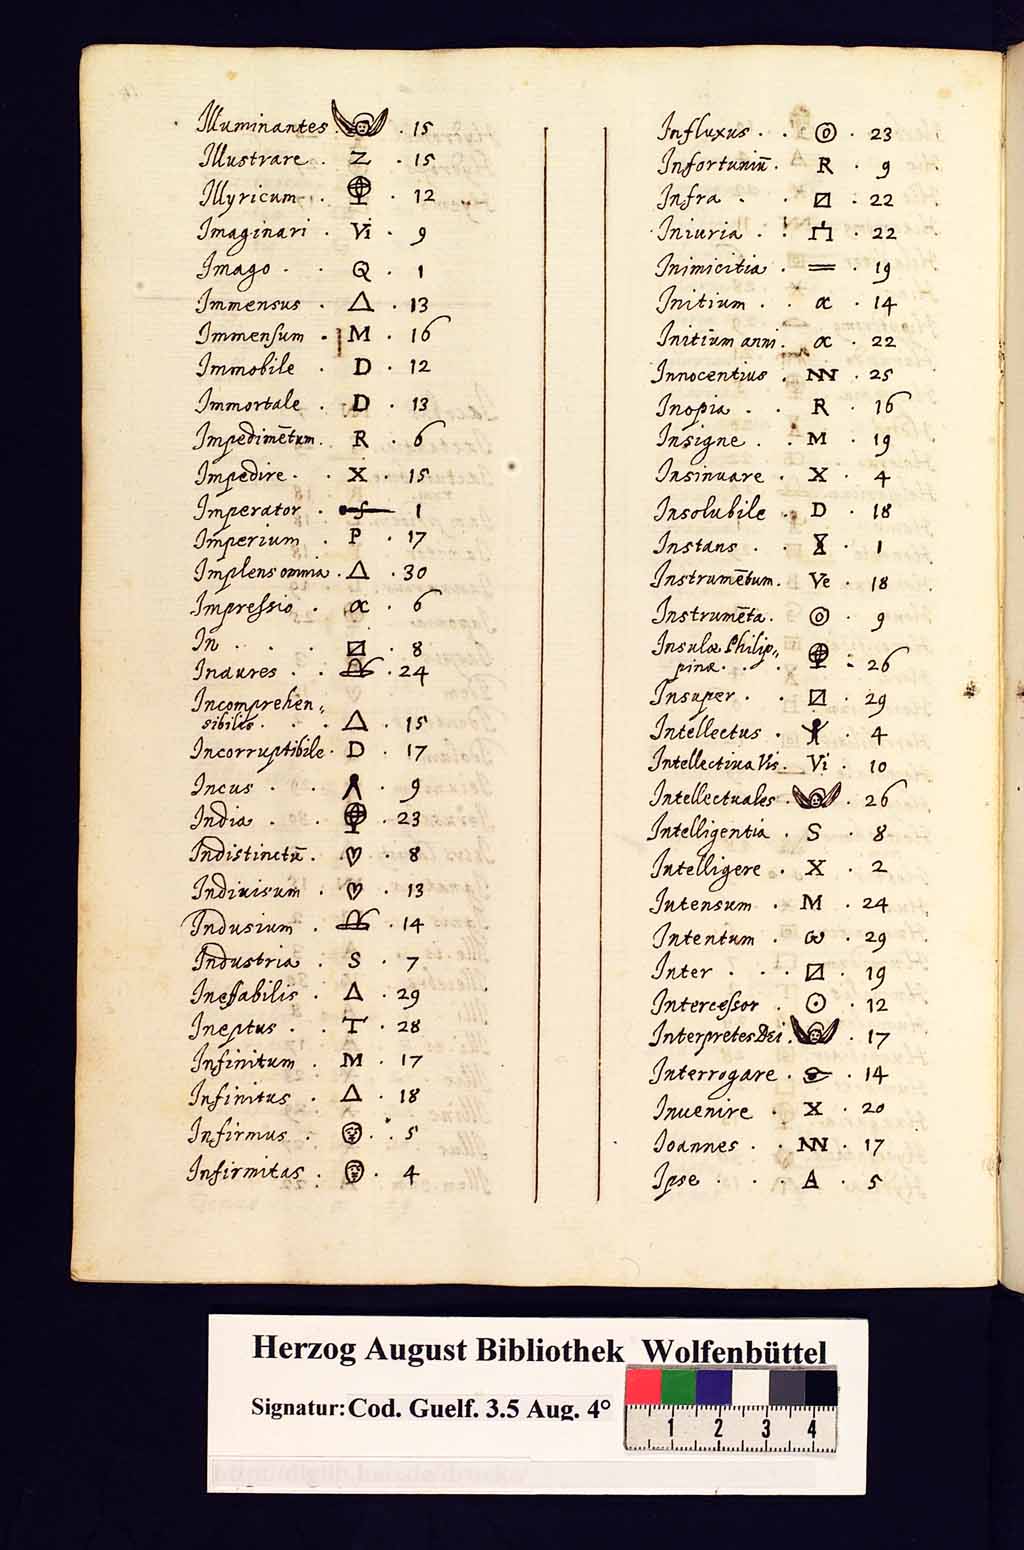 Illuminantes . . 15
Illustrare . Z . 15
Illyricum . . 12
Imaginari . Vi . 9
Imago . . Q . 1
Immensus . Δ . 13
Immensum . M . 16
Immobile . D . 12
Immortale . D . 13
Impedimētum . R . 6
Impedire . . X . 15
Imperator . . 1
Imperium . P . 17
Implens omnia . Δ . 30
Impressio . α . 6
In . . . . 8
Inaures . . 24
Incomprehen„
sibilis . . . Δ . 15
Incorruptibile . D . 17
Incus . . . 9
India . . . 23
Indistinctū . ♡ . 8
Indiuisum . ♡ . 13
Indusium . . 14
Industria . S . 7
Ineffabilis . Δ . 29
Ineptus . . T . 28
Infinitum . M . 17
Infinitus . Δ . 18
Infirmus . . . 5
Infirmitas . . 4
Influxus . . ⊙ . 23
Infortuniū . R . 9
Infra . . . 22
Iniuria . . . 22
Inimicitia . = . 19
Initium . . α . 14
Initium anni . α . 22
Innocentius . NN . 25
Inopia . . R . 16
Insigne . . M . 19
Insinuare . X . 4
Insolubile . D . 18
Instans . . . 1
Instrumētum . Ve . 18
Instrumēta . ⊙ . 9
Insulæ Philip„
pinæ . . . . 26
Insuper . . . 29
Intellectus . . 4
Intellectiua Vis . Vi . 10
Intellectuales . . 26
Intelligentia . S . 8
Intelligere . X . 2
Intensum . M . 24
Intentum . ω . 29
Inter . . . . 19
Intercessor . ⊙ . 12
Interpretes Dei . . 17
Interrogare . . 14
Inuenire . X . 20
Ioannes . . NN . 17
Ipse . . . A . 5
Herzog August Bibliothek Wolfenbüttel
Signatur: Cod. Guelf. 3.5 Aug. 4°
1 2 3 4